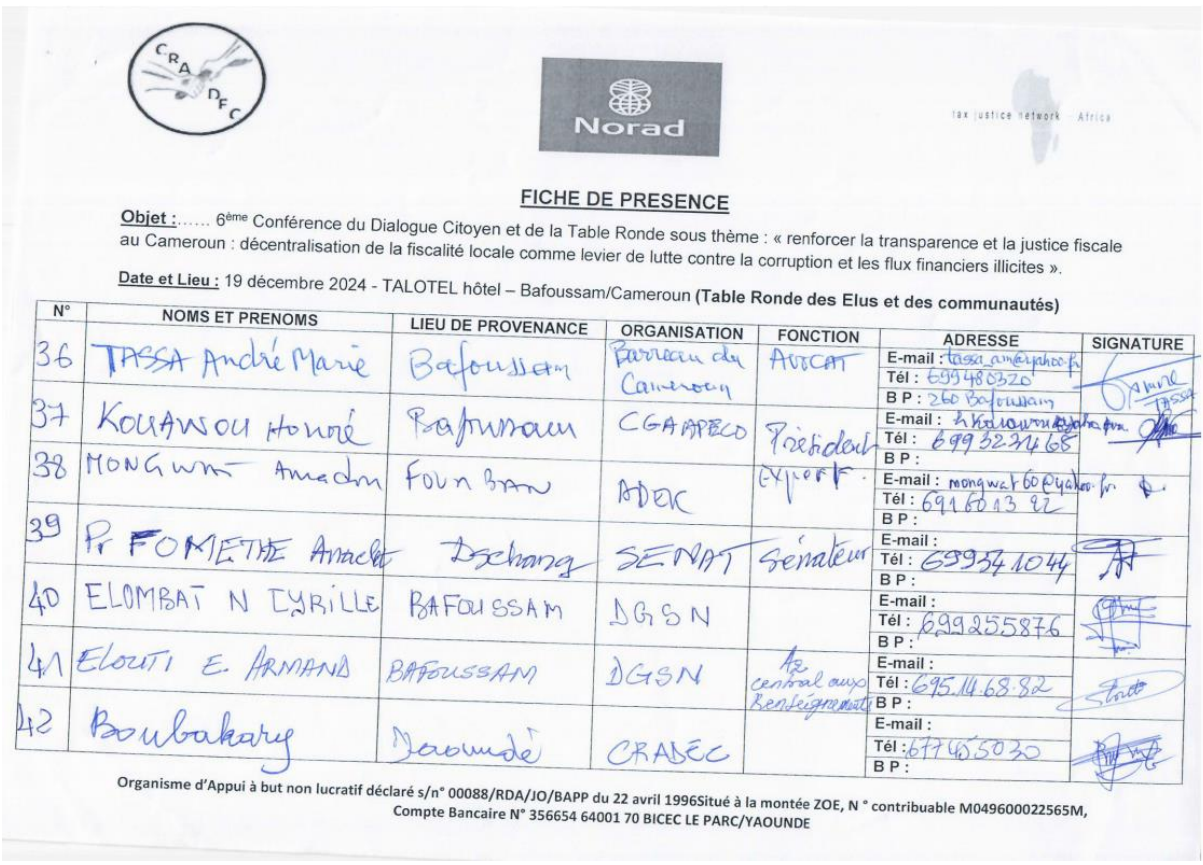 CRADFC
Norad
tax justice network - Africa
FICHE DE PRESENCE
Objet :...... 6ème Conférence du Dialogue Citoyen et de la Table Ronde sous thème : « renforcer la transparence et la justice fiscale
au Cameroun : décentralisation de la fiscalité locale comme levier de lutte contre la corruption et les flux financiers illicites ».
Date et Lieu : 19 décembre 2024 - TALOTEL hôtel – Bafoussam/Cameroun (Table Ronde des Elus et des communautés)
N° NOMS ET PRENOMS LIEU DE PROVENANCE ORGANISATION FONCTION ADRESSE SIGNATURE
36 TASSA André Marie Bafoussam Barreau du Cameroun AVOCAT E-mail : tassa_am@yahoo.fr
Tél : 699480320
B P : 260 Bafoussam
TASSA
37 KOUAWOU Honoré Bafoussam CGAAPECO Président E-mail :
Tél : 699323468
B P :
38 MONGWAT Amadou FOUMBAN ADEK Expert E-mail : mongwat60@yahoo.fr
Tél : 691601322
B P :
39 Pr FOMETHE Anaclet Dschang SENAT Sénateur E-mail :
Tél : 699541044
B P :
40 ELOMBAT N CYRILLE BAFOUSSAM DGSN E-mail :
Tél : 699255876
B P :
41 ELOUTI E. ARMAND BAFOUSSAM DGSN central aux Renseignements E-mail :
Tél : 695.14.68.82
B P :
42 Boubakary Yaoundé CRADEC E-mail :
Tél : 677455030
B P :
Organisme d'Appui à but non lucratif déclaré s/n° 00088/RDA/JO/BAPP du 22 avril 1996Situé à la montée ZOE, N ° contribuable M049600022565M,
Compte Bancaire N° 356654 64001 70 BICEC LE PARC/YAOUNDE